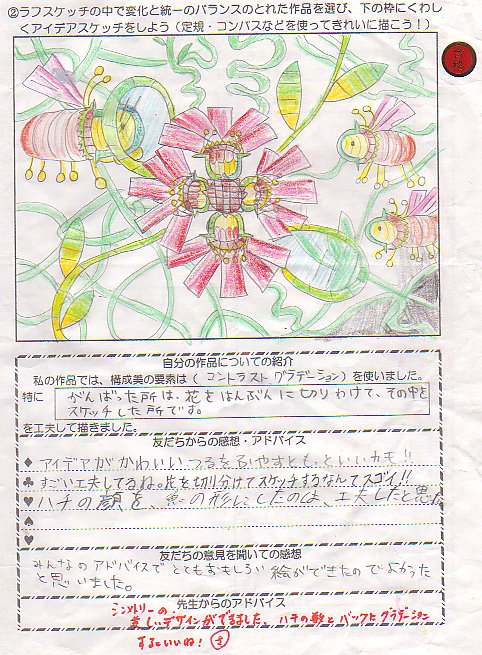 ②ラフスケッチの中で変化と統一のバランスのとれた作品を選び、下の枠にくわし
くアイデアスケッチをしよう（定規・コンパスなどを使ってきれいに描こう！）
合格
自分の作品についての紹介
私の作品では、構成美の要素は（ コントラスト グラデーション）を使いました。
特に がんばった所は、花をはんぶんに切りわけて、その中を
スケッチした所です。
を工夫して描きました。
友だちからの感想・アドバイス
♠ アイデアがかわいい つるをふやすともっといいカモ!!
♣ すごい工夫してるね。花を切り分けてスケッチするなんてスゴイ!!
♥ ハチの顔を、鳥の形にしたのは、工夫したと思た
♠
♥
友だちの意見を聞いての感想
みんなのアドバイスでとてもおもしろい絵ができたのでよかった
と思いました。
先生からのアドバイス
シンメトリーの
美しいデザインができました、ハチの数とバックにグラデーション
するといいね！